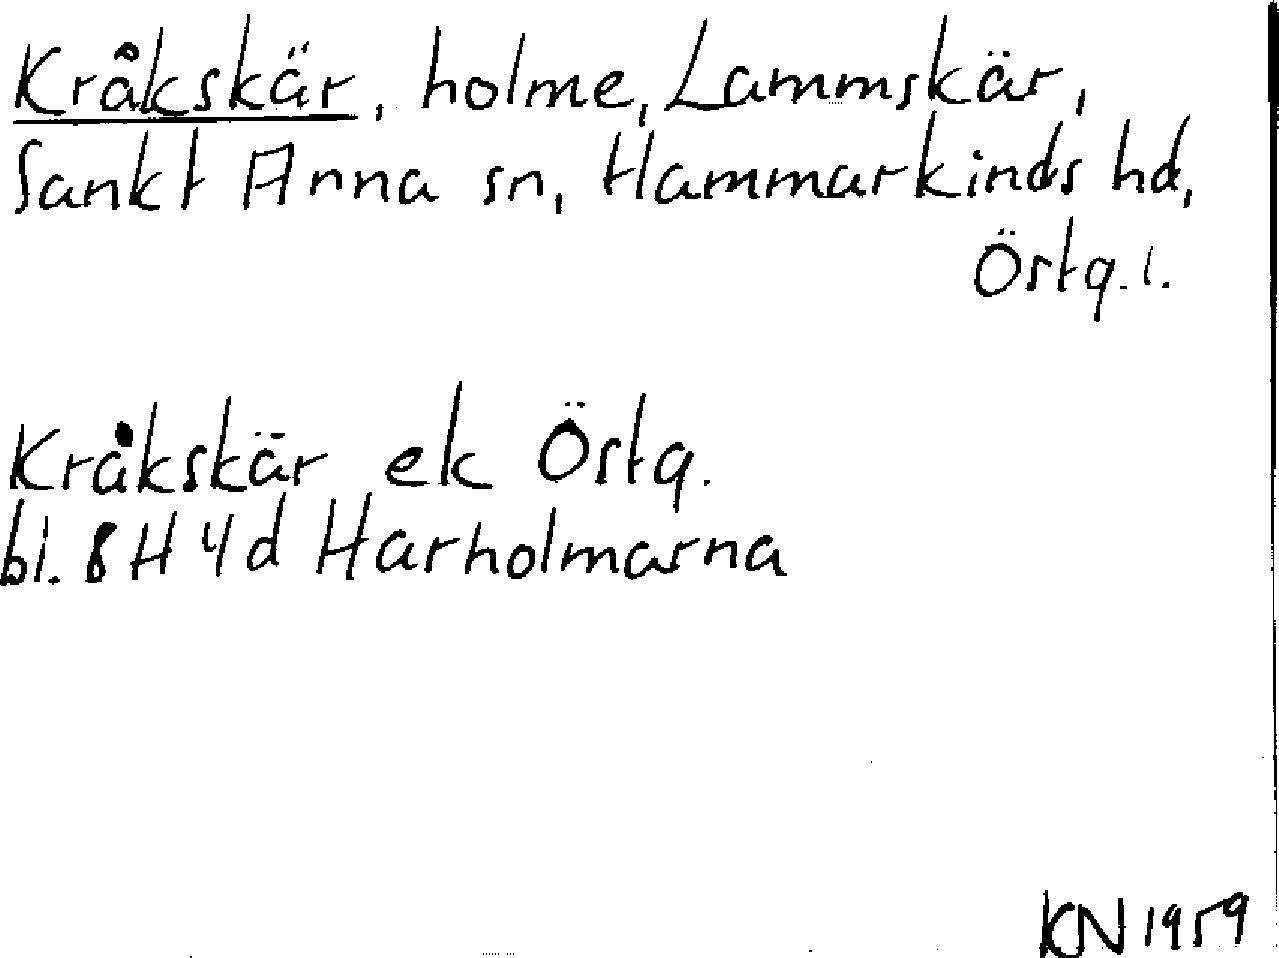 Kråkskär, holme, Lammskär,
Sankt Anna sn, Hammarkinds hd,
Östg. l.
Kråkskär ek Östg.
bl. 8H 4d Harholmarna
KN 1959